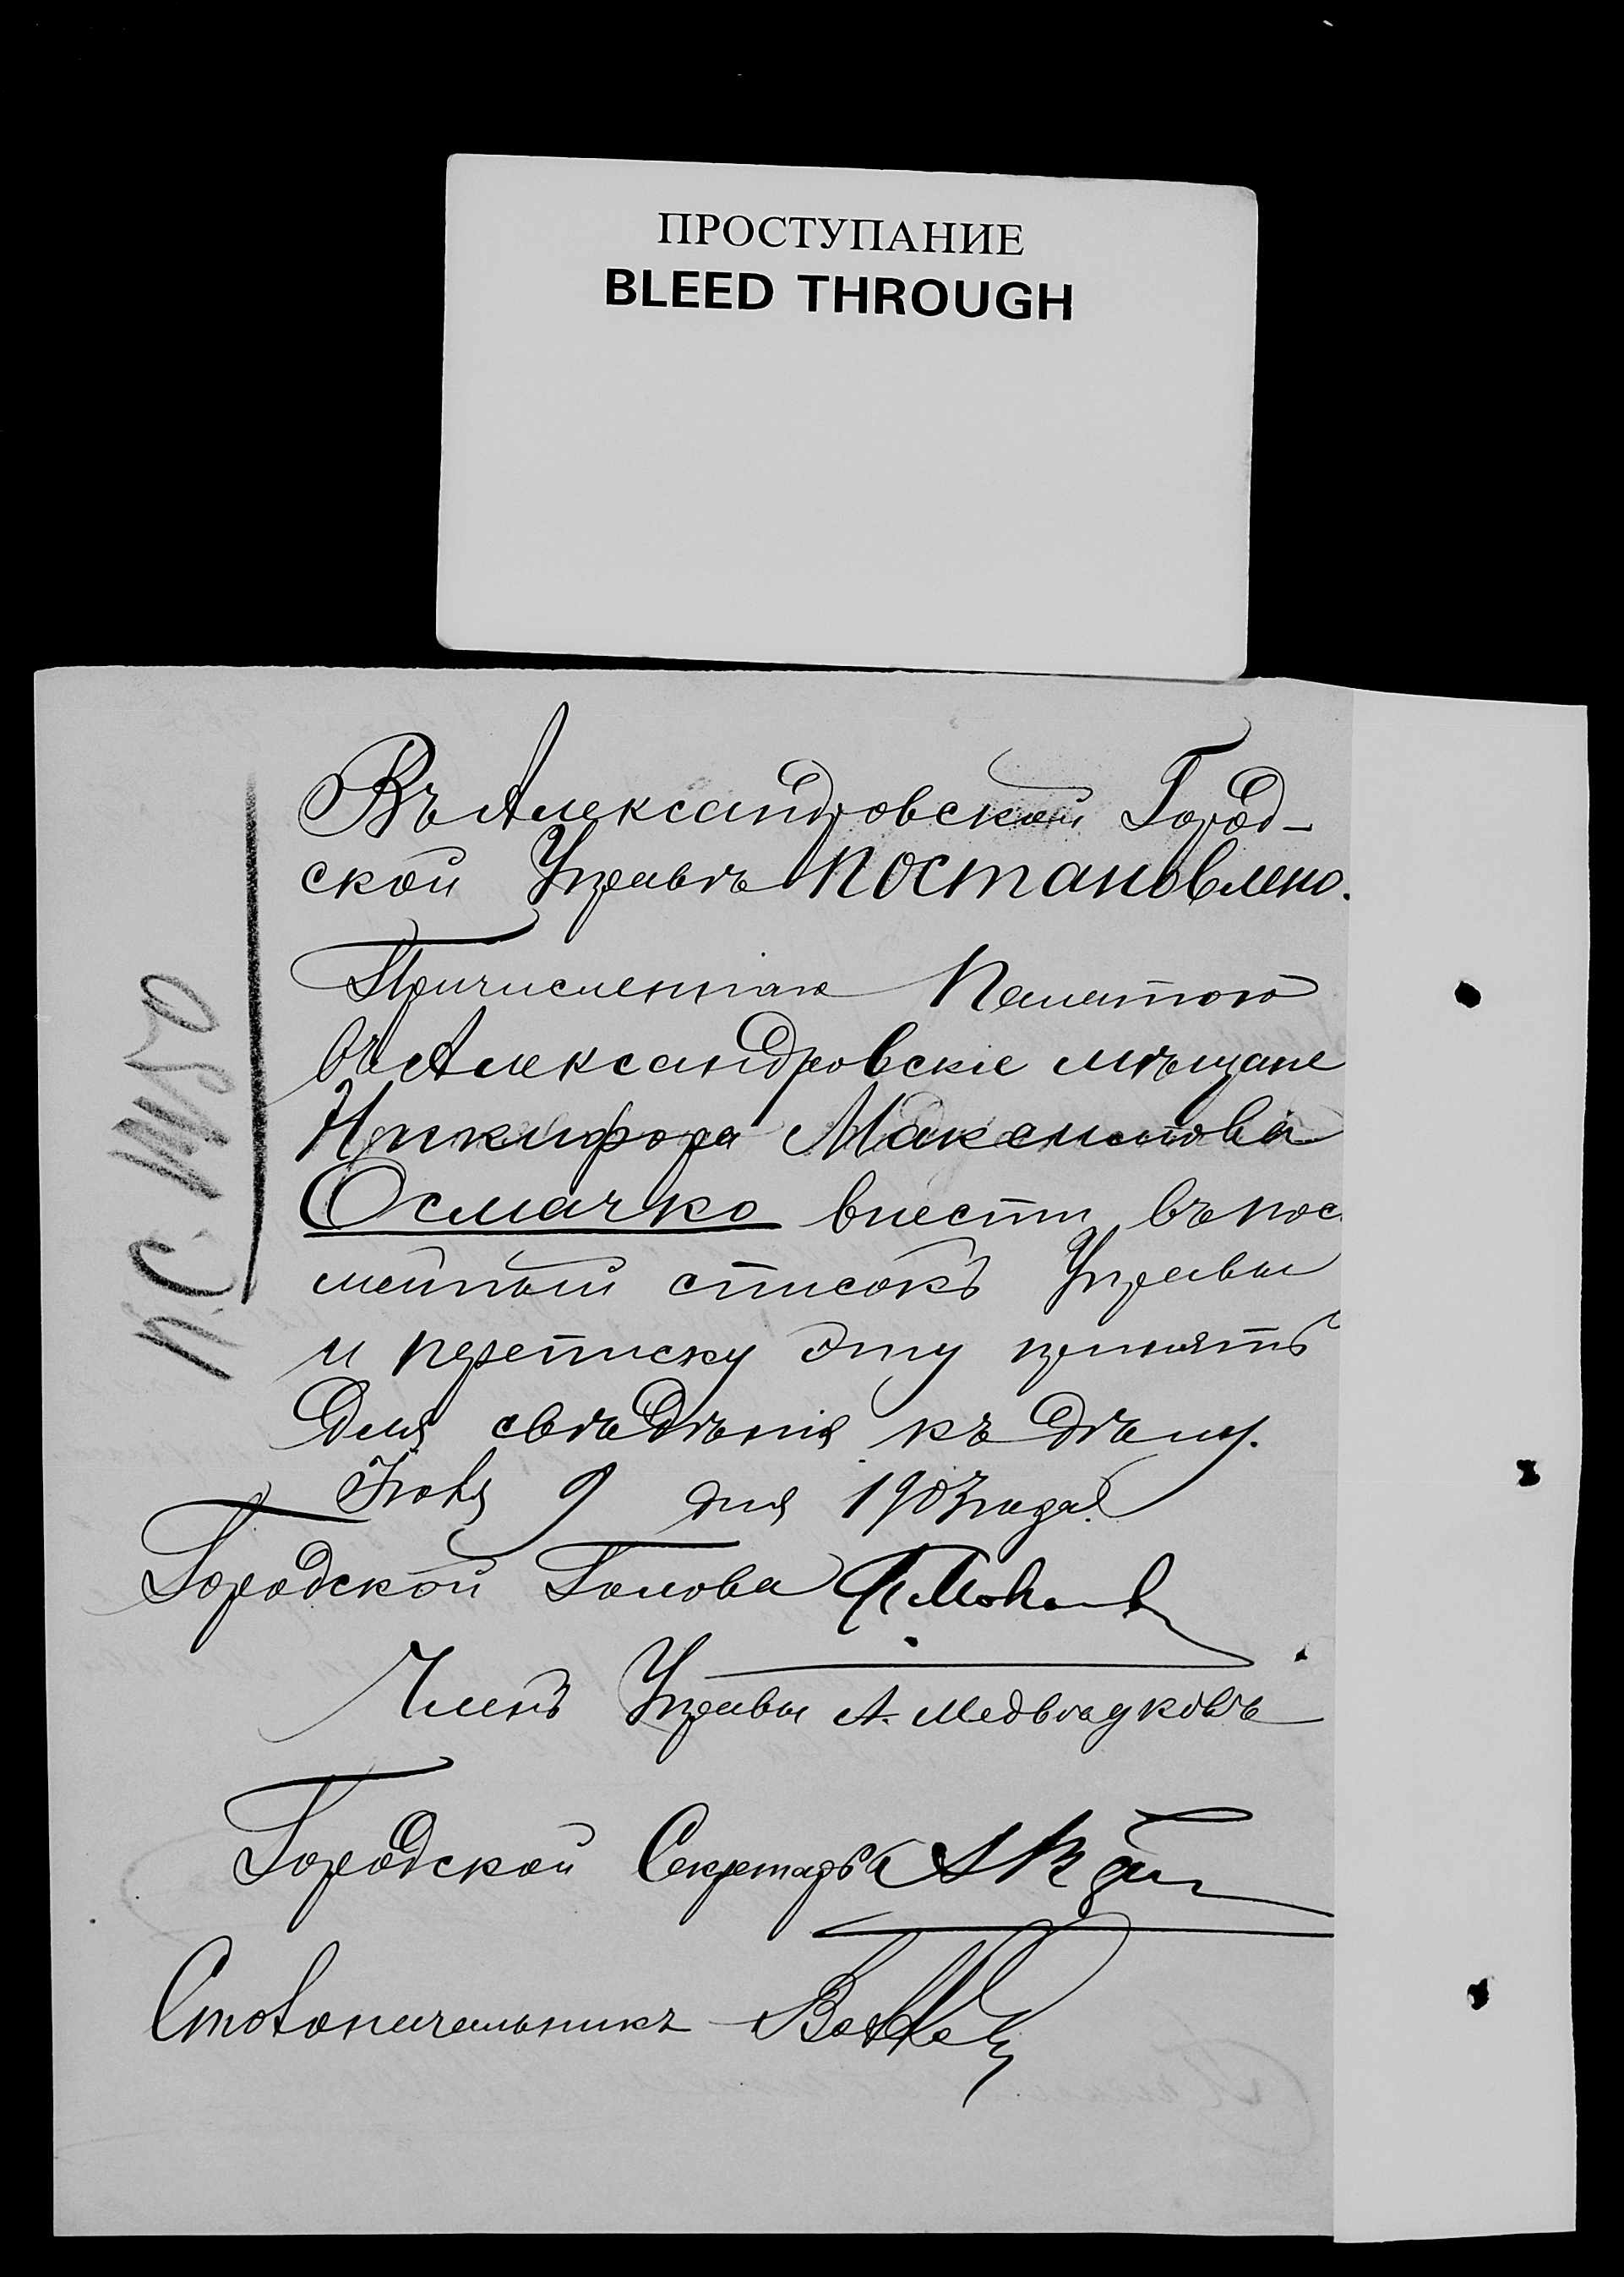 ПРОСТУПАНИЕ
BLEED THROUGH
Въ Александровской Город-
ской Управѣ постановлено.
Причисленнаго Палатою
въ Александровскіе мѣщане
Никифора Максимова
Осмачко внести въ посе
мейный списокъ Управы
и переписку эту принять
для свѣдѣнія къ дѣлу.
Іюля 9 дня 1903 года
Городской Голова
Членъ Управы А. Медвѣдковъ
Городской Секретарь
Столоначальникъ
П.С. №